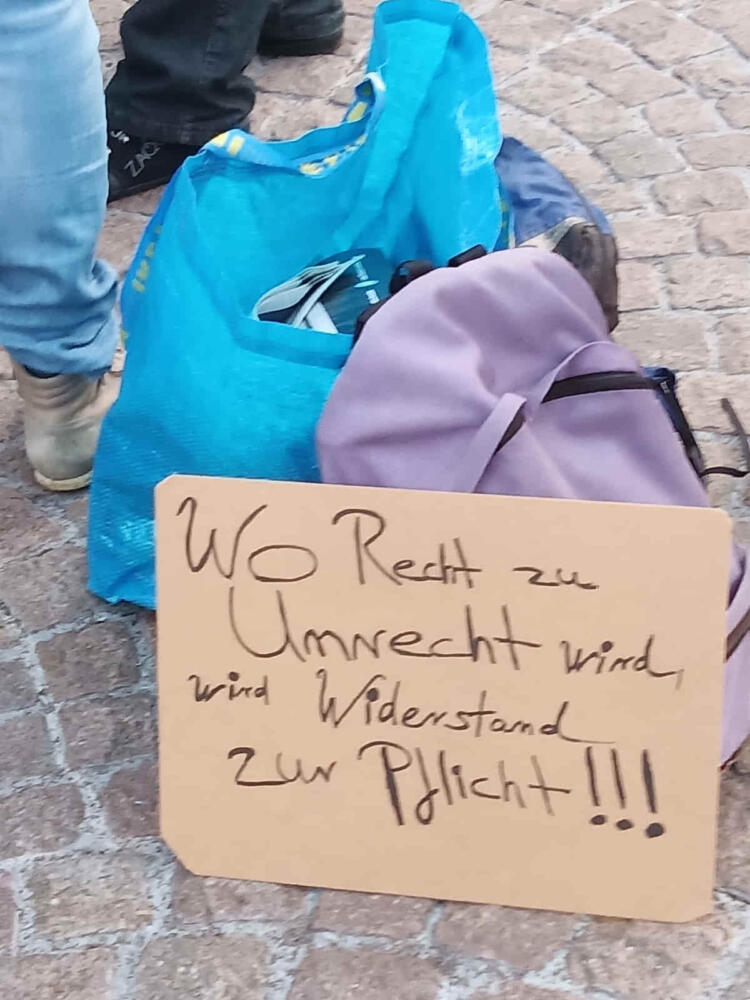 Wo Recht zu
Unrecht wird,
wird Widerstand
zur Pflicht!!!